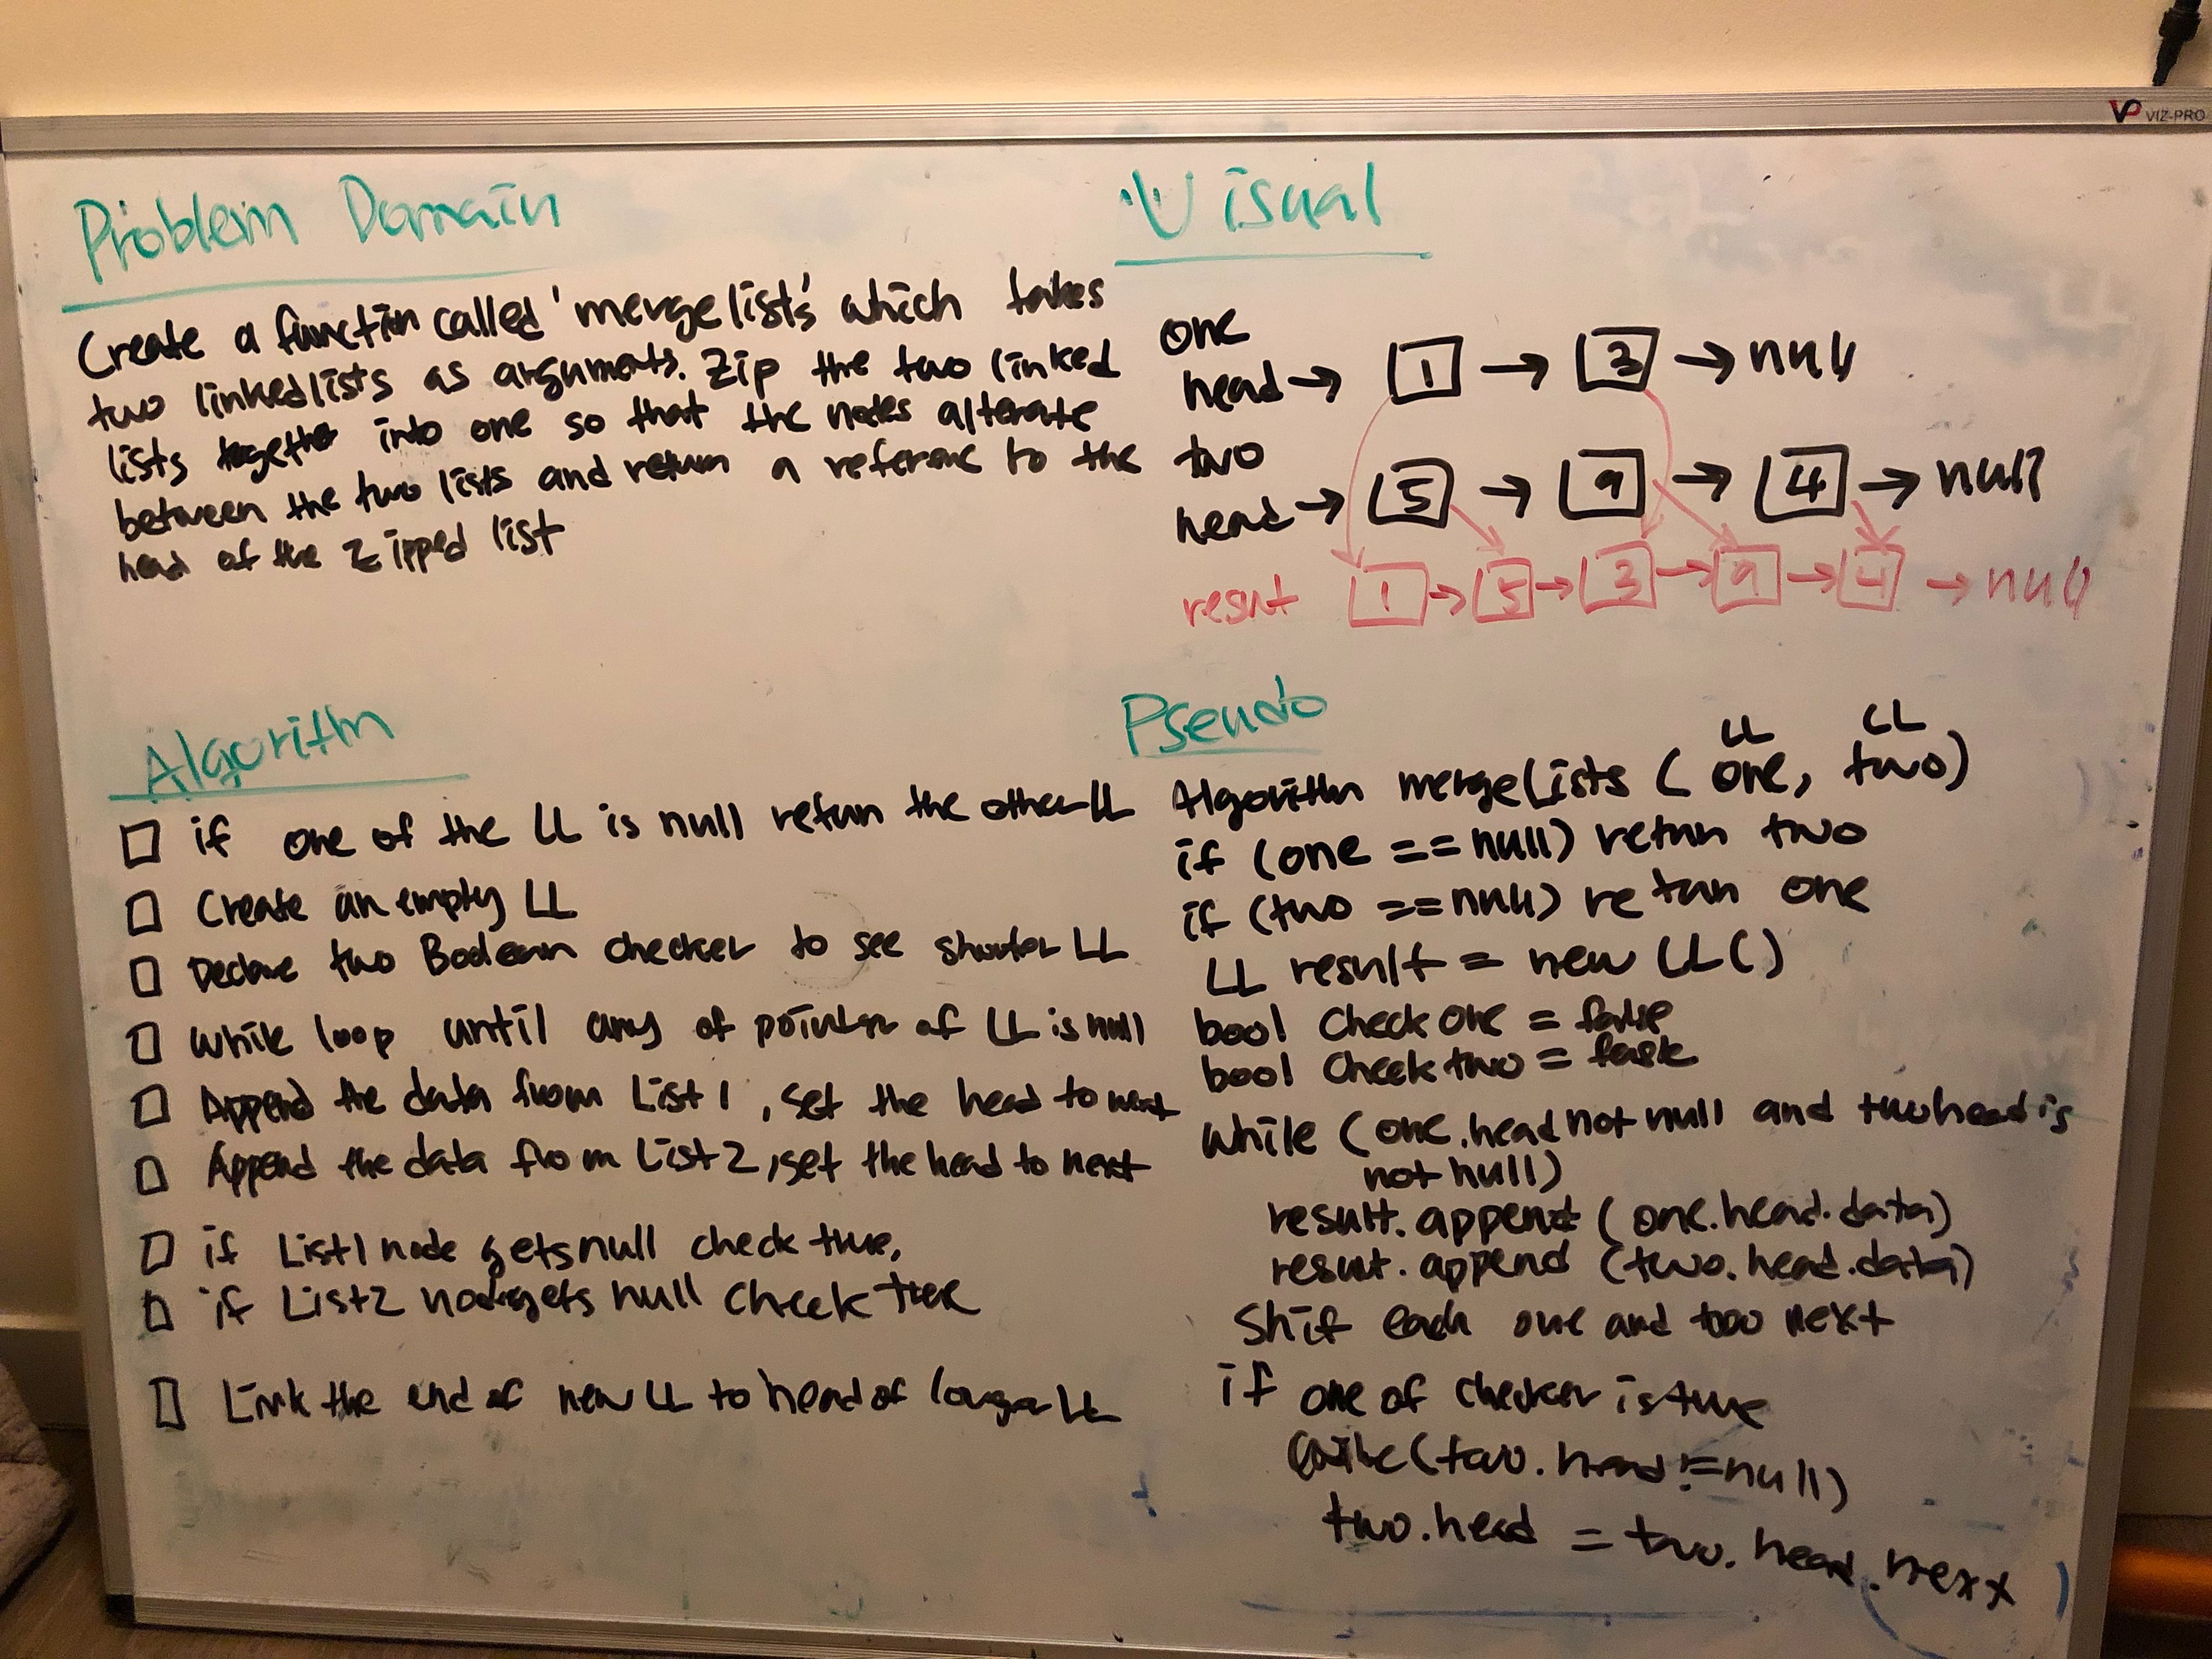 VIZ-PRO
Problem Domain
Create a function called 'mergelists' which takes
two linkedlists as arguments. Zip the two linked
lists together into one so that the nodes alterate
between the two lists and return a reference to the
head of the zipped list
Visual
one
head → 1 → 3 → null
two
head → 5 → 9 → 4 → null
result 1 → 5 → 3 → 9 → 4 → null
Algorithm
□ if one of the LL is null return the other LL
□ Create an empty LL
□ Declare two Boolean checker to see shorter LL
□ While loop until any of pointer of LL is null
□ Append the data from List1, set the head to next
□ Append the data from List2, set the head to next
□ if List1 node gets null check true,
□ if List2 node gets null check true
□ Link the end of new LL to head of longer LL
Pseudo
LL LL
Algorithm mergeLists (one, two)
if (one == null) return two
if (two == null) return one
LL result = new LL()
bool Check one = false
bool Check two = false
While (one.head not null and two head is
not null)
result.append (one.head.data)
result.append (two.head.data)
Shif each one and two next
if one of checker is true
while (two.head != null)
two.head = two.head.next